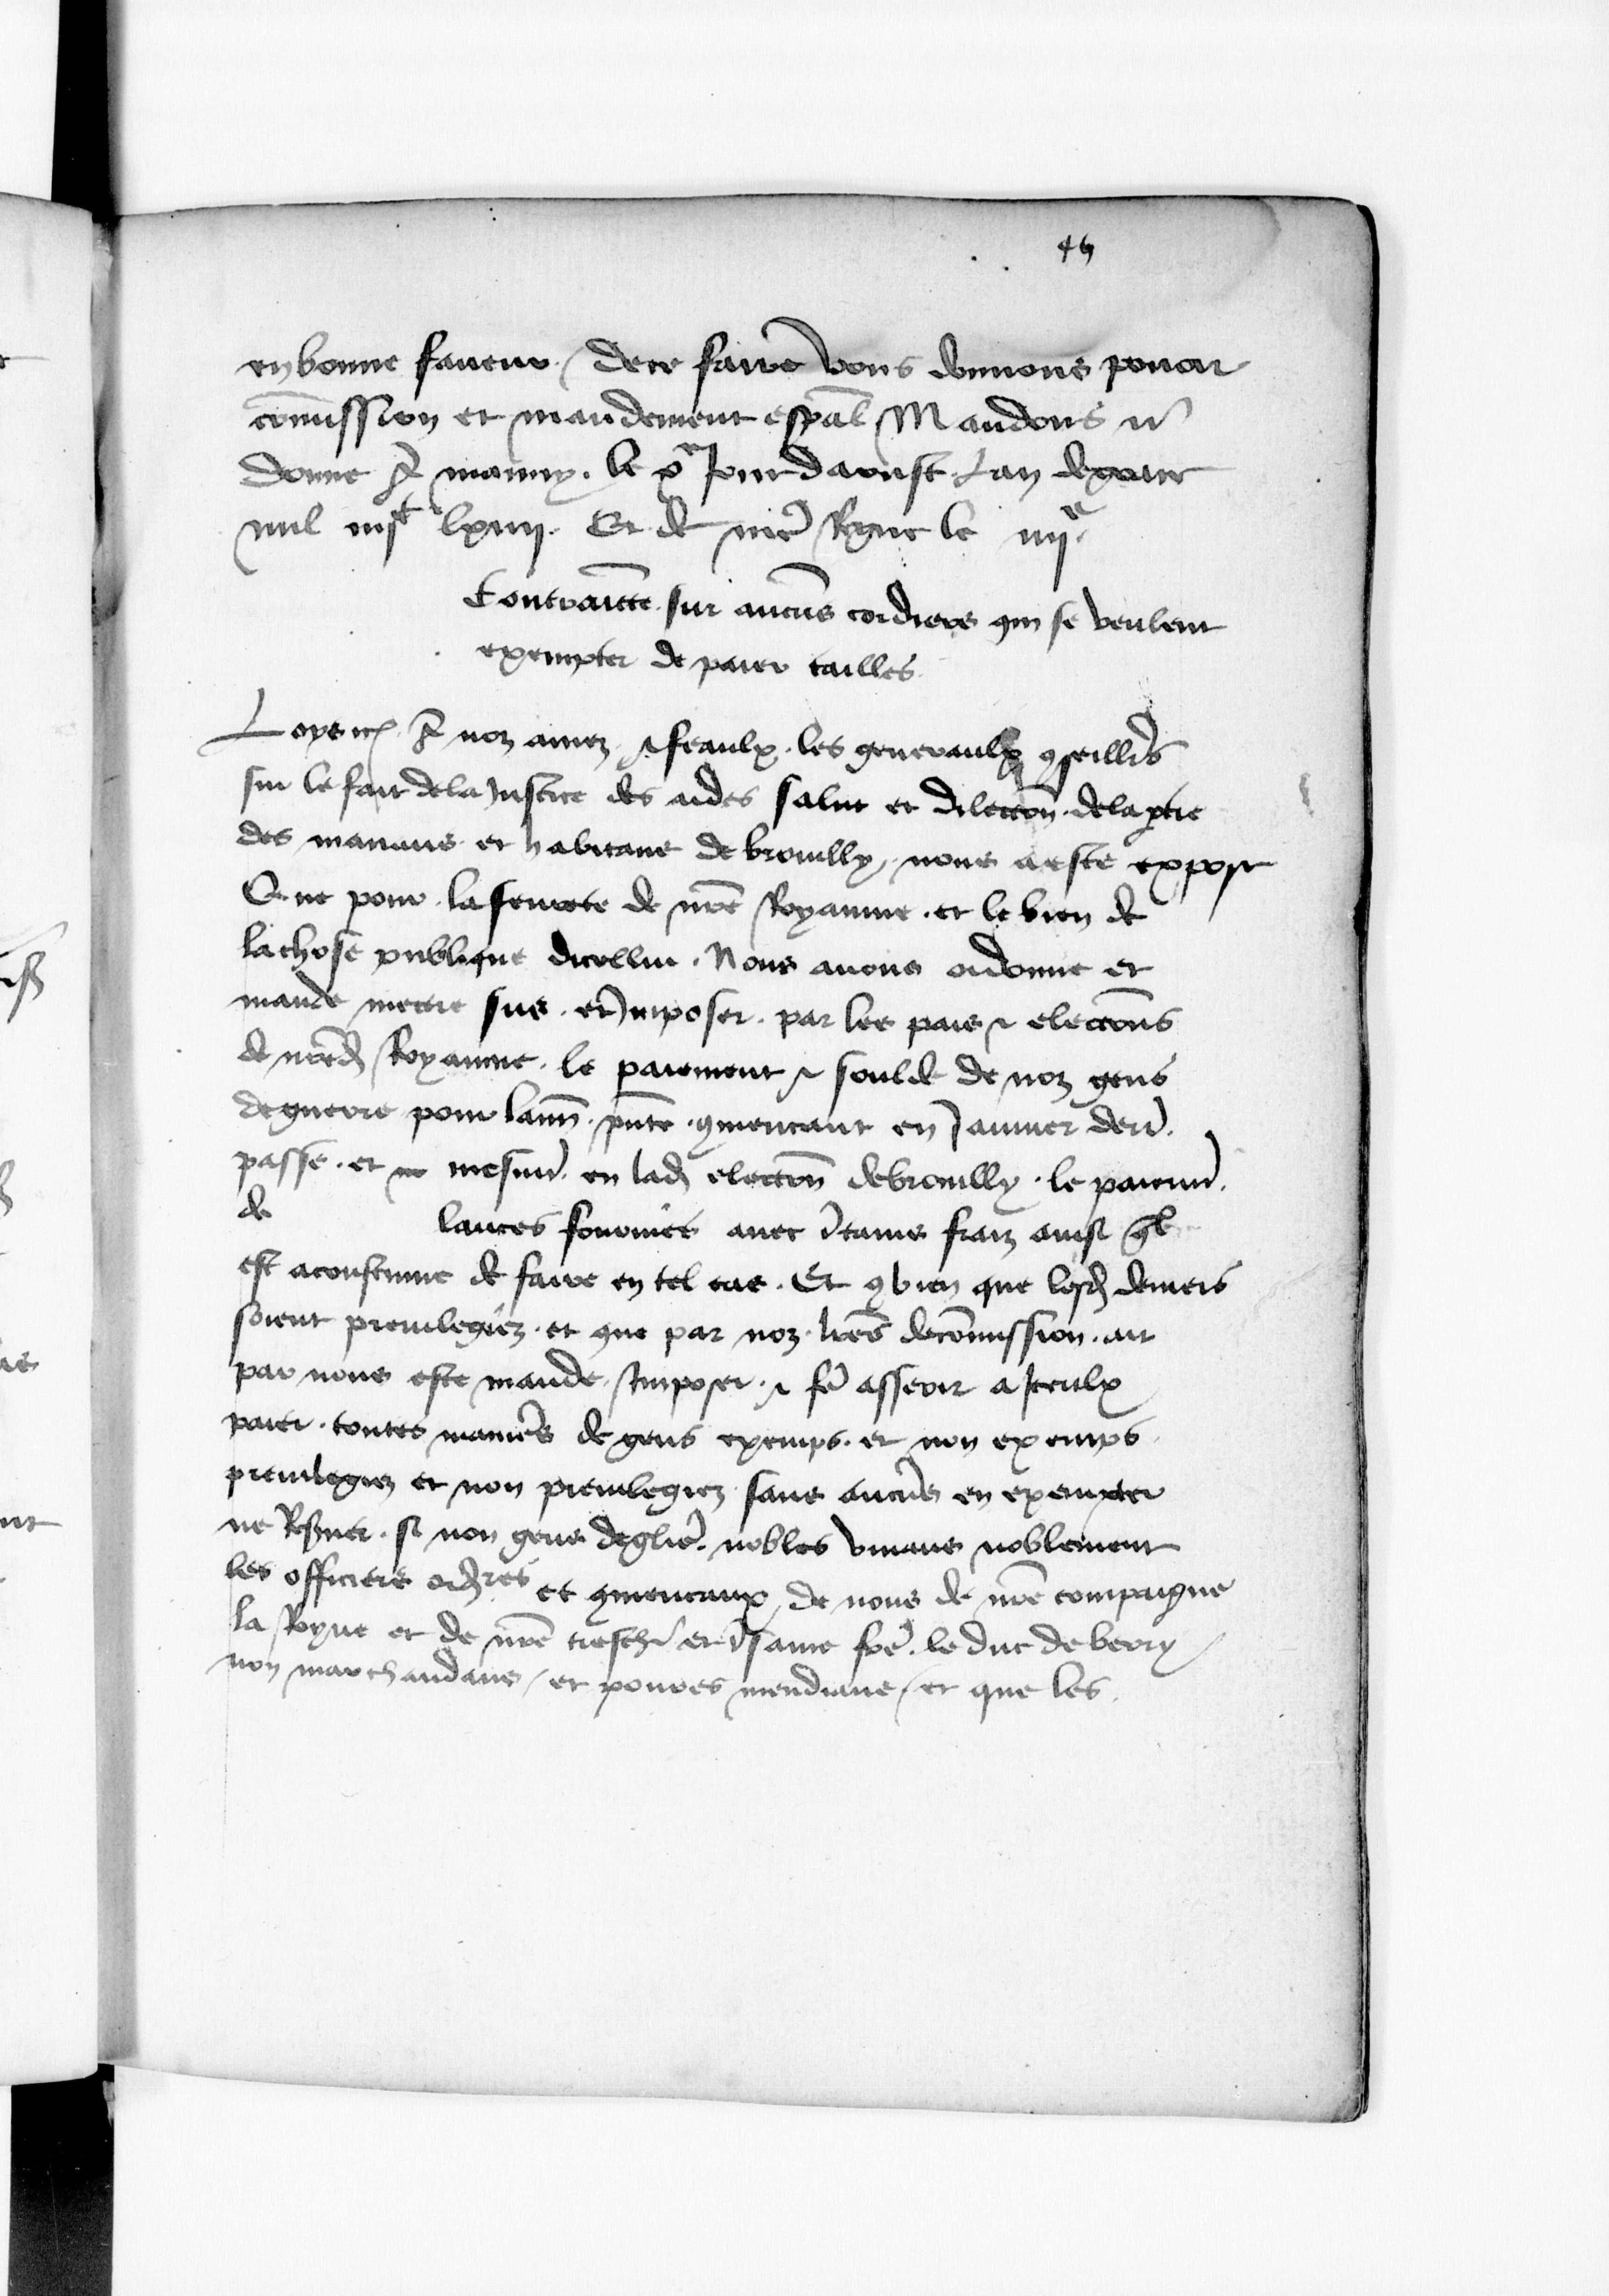 45
en bonne faveur / de ce faire vous donnons povoir
com̃ission et mandement esp̃al Mandons et̃
donne A mauny. le xe Jour daoust Lan de grace
mil iiijc lxiiij. Et de nr̃e Regne le iiije.
Contraı̃cte sur aucũs cordiers qui se veulent
exempter de paier tailles
Loys etc̃ A noz amez & feaulx. les generaulx 9seillrs̃
sur le fait de la Justice des aides salut et dilectoñ. de la p̃tie
des manans et habitans de brouilly, nous a este expose
Que pour la seurete de nr̃e Royaume. et le bien de
la chose publique dicellui. Nous avons ordonne et
mande mectre sus. et Imposer. par les pais & electoñs
de nr̃ed Royaume. le paiement & soulde de noz gens
de guerre pour lanñ. pñte. 9mencant en Januier dern̄.
passe. et mesm̄. en lad electoñ de brouilly. le paiem̄.
de lances fournies avec c̃tains fraiz ainsi q̃l
est acoustume de faire en tel cas. Et 9bien que lesd deniers
soient previlegiez. et que par noz. lr̃es de com̃ission. ait
par nous este mande Imposer. & fẽ asseoir a Iceulx
paier. toutes manier̃s de gens exemps. et non exemps
previlegiez et non previlegiez sans aucũs en exempter
ne Rs̃uer. si non gens deglise. nobles vivans noblement
les officiers ordr̃es et 9mencaux, de nous de nr̃e compaigne
la Royne et de nr̃e treschr̃ et ame frẽ. le duc de berry
non marchandans / et povres mendians / et que les